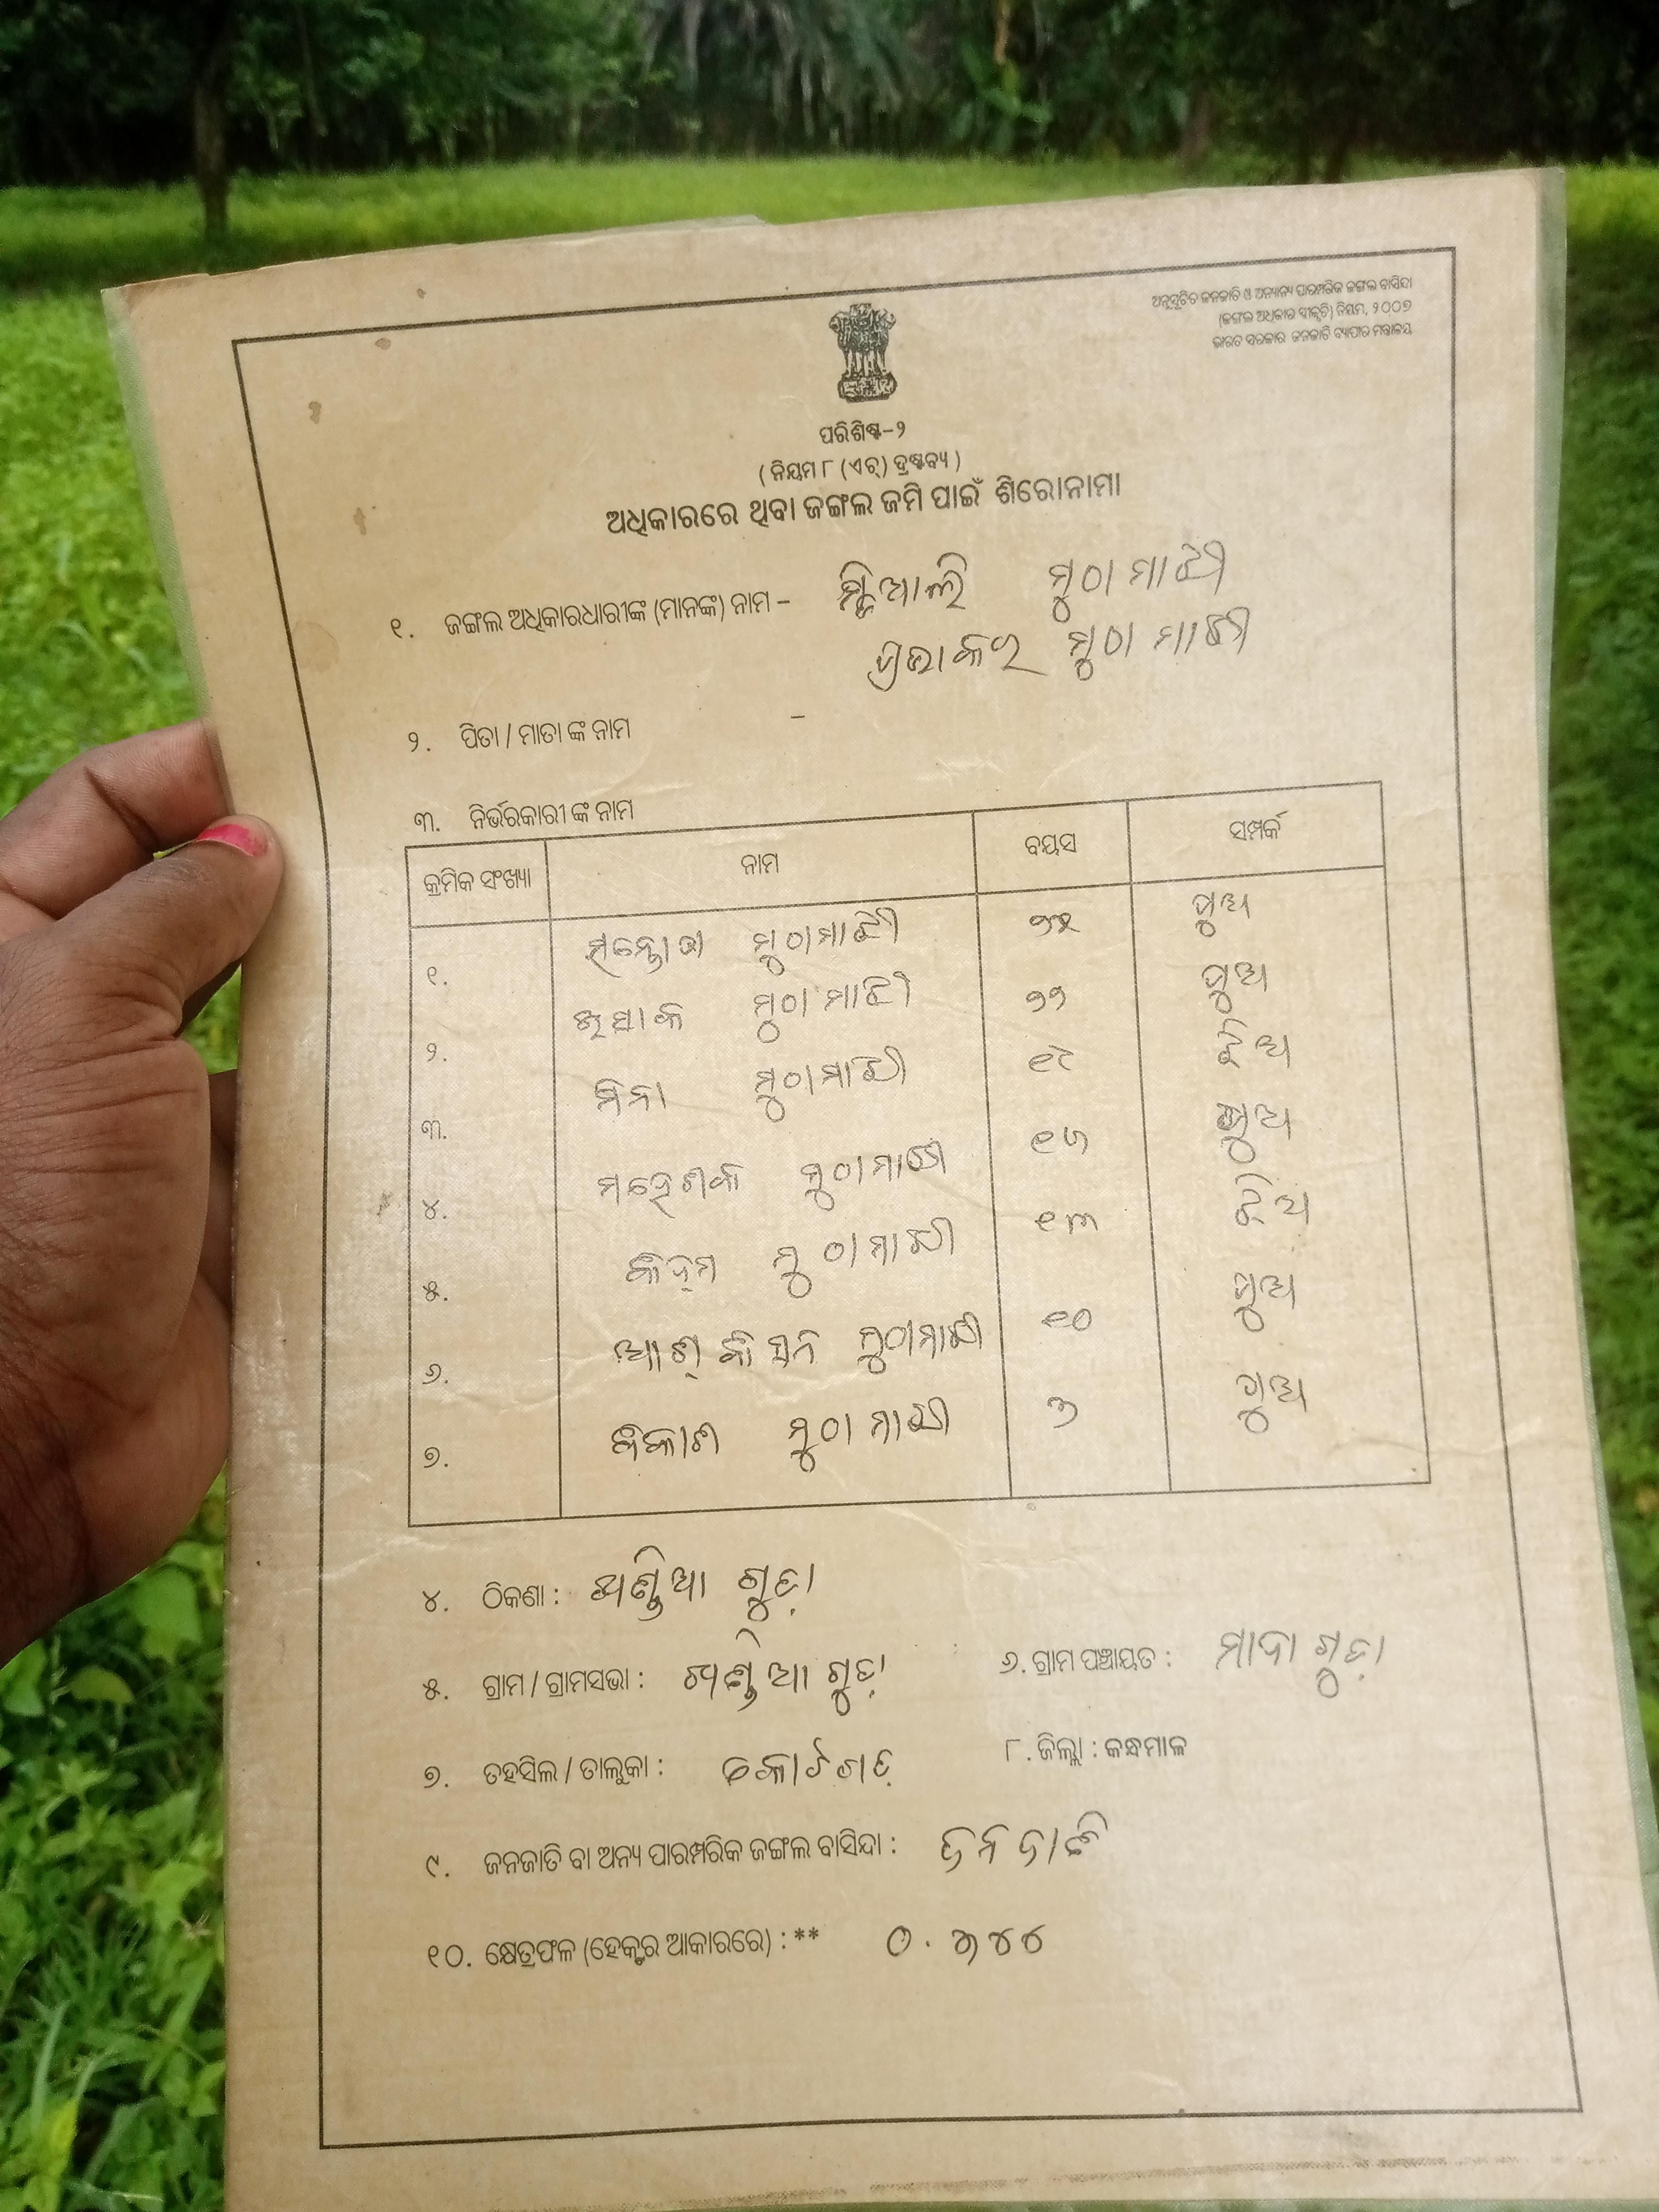 ଅନୁସୂଚିତ ଜନଜାତି ଓ ଅନ୍ୟାନ୍ୟ ପାରମ୍ପରିକ ଜଙ୍ଗଲ ବାସିନ୍ଦା
(ଜଙ୍ଗଲ ଅଧିକାର ସ୍ୱୀକୃତି) ନିୟମ, ୨୦୦୭
ଭାରତ ସରକାର ଜନଜାତି ବ୍ୟାପାର ମନ୍ତ୍ରାଳୟ
ପରିଶିଷ୍ଟ-୨
(ନିୟମ ୮ (ଏଚ୍) ଦ୍ରଷ୍ଟବ୍ୟ)
ଅଧିକାରରେ ଥିବା ଜଙ୍ଗଲ ଜମି ପାଇଁ ଶିରୋନାମା
୧. ଜଙ୍ଗଲ ଅଧିକାରଧାରୀଙ୍କ (ମାନଙ୍କ) ନାମ - ମୁଠା ମାଝୀ
ପ୍ରଭାକର ମୁଠା ମାଝୀ
୨. ପିତା / ମାତା ଙ୍କ ନାମ -
୩. ନିର୍ଭରକାରୀ ଙ୍କ ନାମ
କ୍ରମିକ ସଂଖ୍ୟା ନାମ ବୟସ ସମ୍ପର୍କ
୧. ସନ୍ତୋଷ ମୁଠାମାଝୀ ପୁଅ
୨. ଇସାକ ମୁଠା ମାଝୀ ୨୨ ପୁଅ
୩. ମିନା ମୁଠାମାଝୀ ୧୮ ଝିଅ
୪. ମୁଠାମାଝୀ ୧୬ ପୁଅ
୫. ମୁଠାମାଝୀ ୧୩ ଝିଅ
୬. ମୁଠାମାଝୀ ୧୦ ପୁଅ
୭. ବିକାଶ ମୁଠା ମାଝୀ ପୁଅ
୪. ଠିକଣା : ଖଣ୍ଡିଆ ଗୁଡ଼ା
୫. ଗ୍ରାମ / ଗ୍ରାମସଭା : ଖଣ୍ଡିଆ ଗୁଡ଼ା ୬. ଗ୍ରାମ ପଞ୍ଚାୟତ : ଗୁଡ଼ା
୭. ତହସିଲ / ତାଲୁକା : କୋଟଗଡ଼ ୮. ଜିଲ୍ଲା : କନ୍ଧମାଳ
୯. ଜନଜାତି ବା ଅନ୍ୟ ପାରମ୍ପରିକ ଜଙ୍ଗଲ ବାସିନ୍ଦା : ଜନଜାତି
୧୦. କ୍ଷେତ୍ରଫଳ (ହେକ୍ଟର ଆକାରରେ) : **